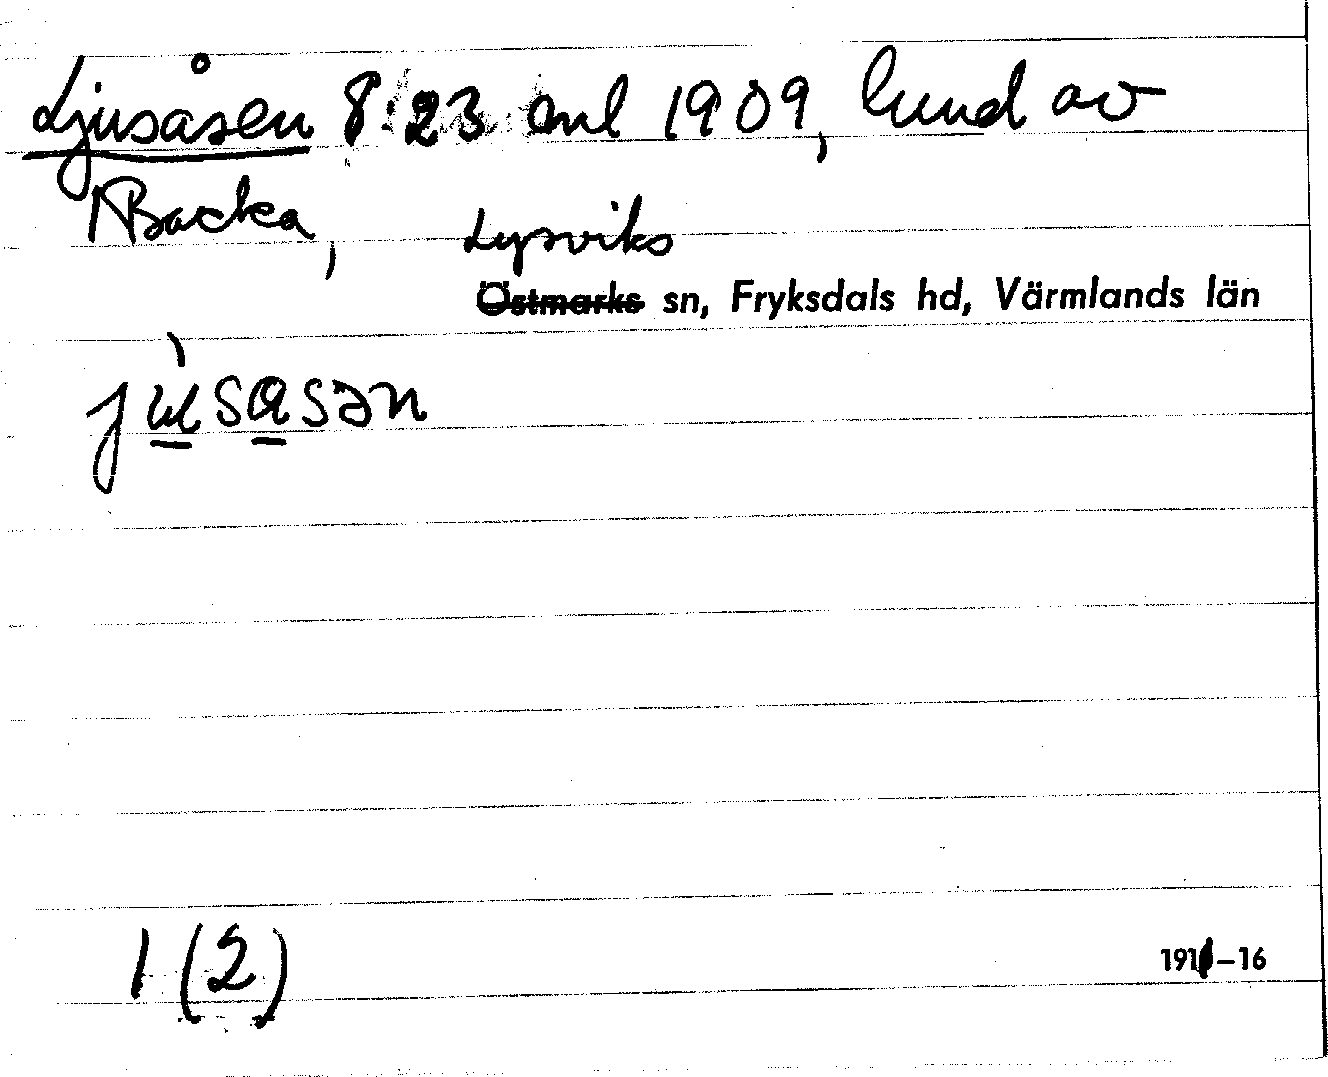 Ljusåsen 8:23 enl 1909, lund av
NBacka,
Lysviks
Östmarks sn, Fryksdals hd, Värmlands län
jʉ̀sasən
1 (2)
1911–16